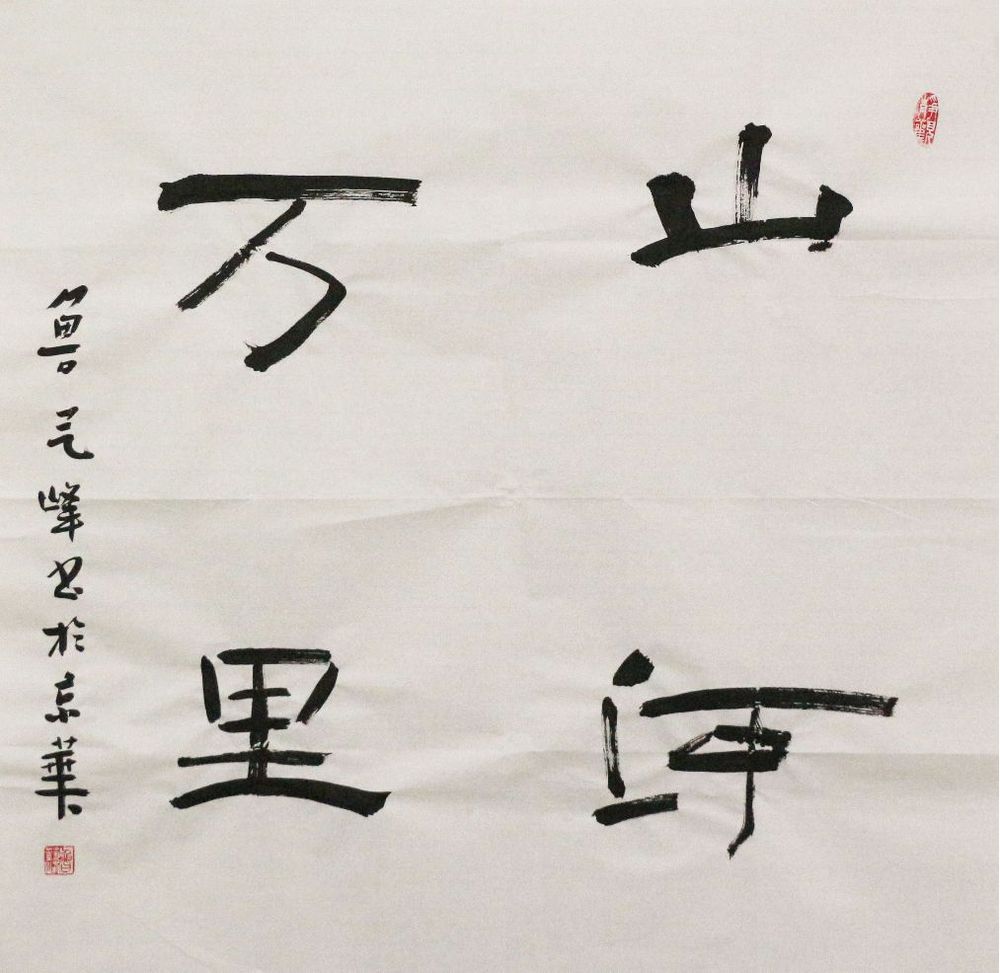 山河
万里
魯元峰书於京華